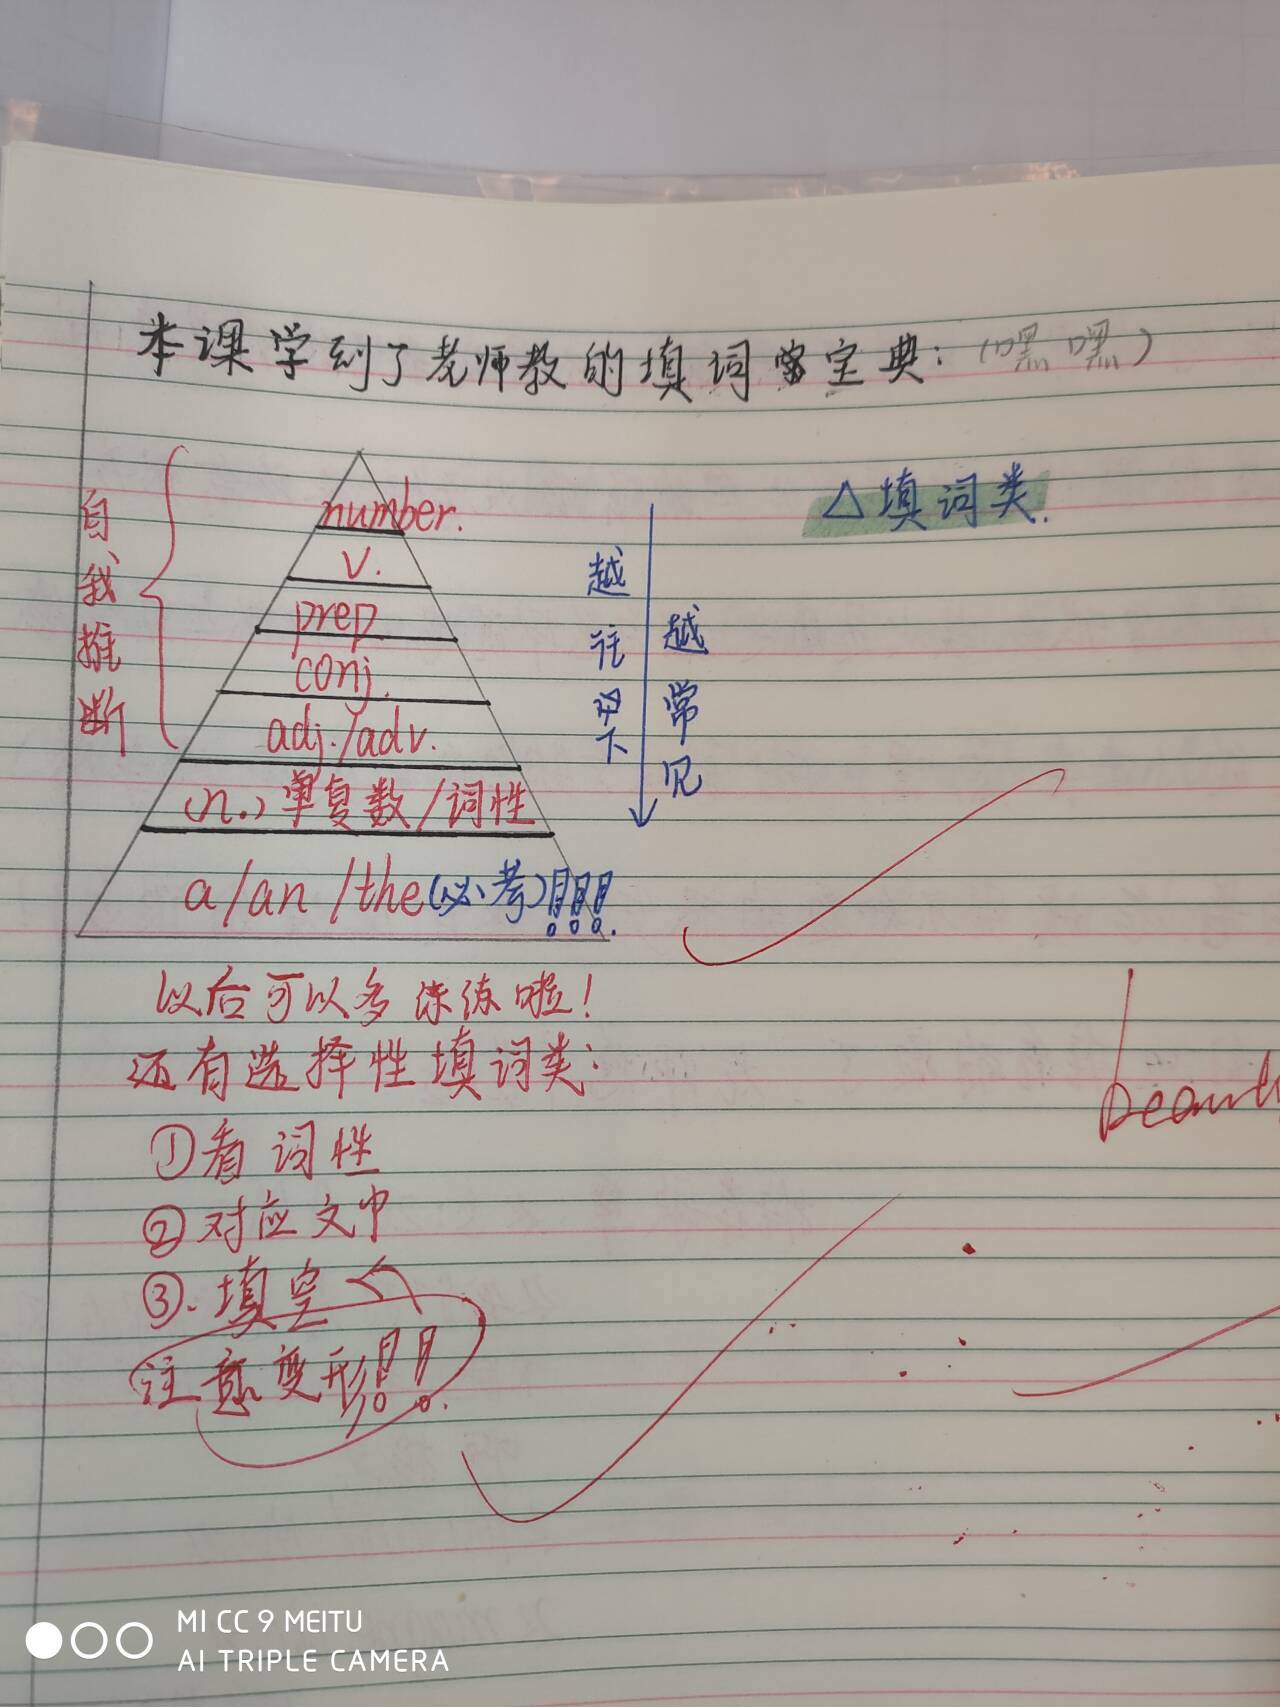 本课学到了老师教的填词宝典:(嘿嘿)
△填词类.
自我推断
number.
v.
prep
conj.
adj./adv.
(n.)单复数/词性
a/an/the(必考)!!!
越往下
越常见
以后可以多练练啦!
还有选择性填词类:
①看词性
②对应文中
③.填空
注意变形!!
MI CC 9 MEITU
AI TRIPLE CAMERA